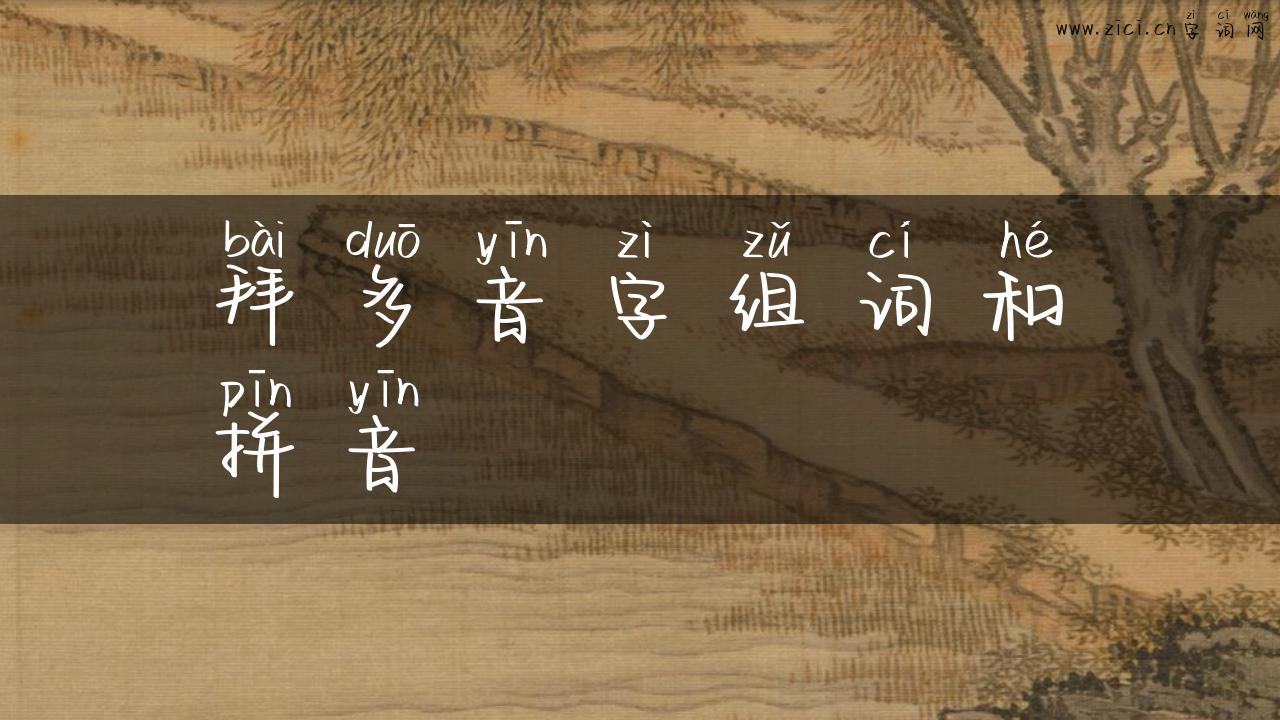 zì cí wǎng
www.zici.cn字词网
bài duō yīn zì zǔ cí hé
拜多音字组词和
pīn yīn
拼音